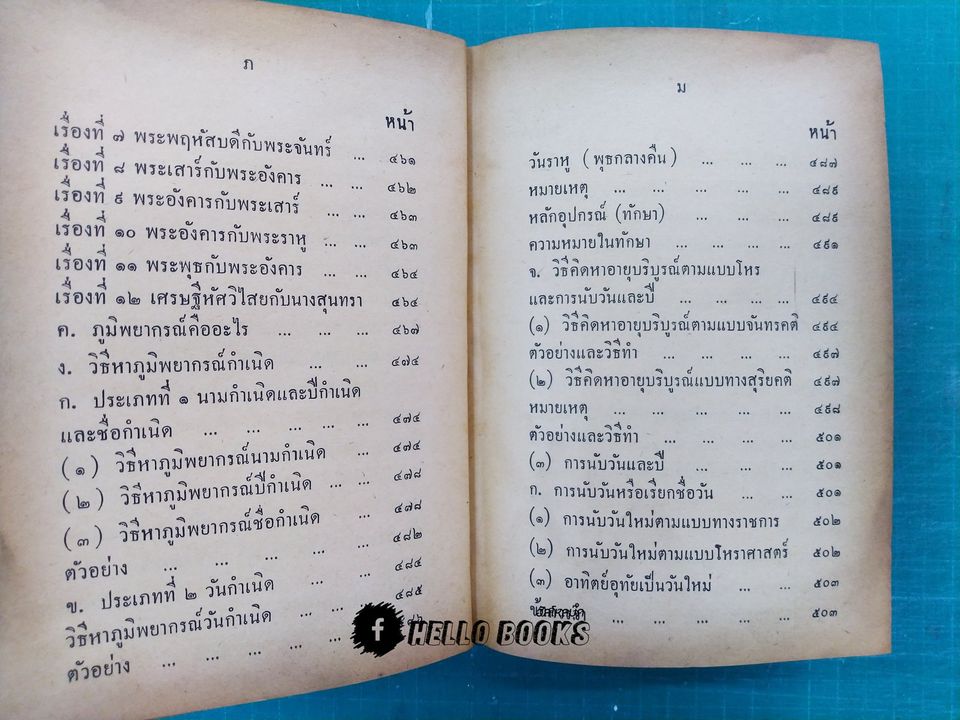 ภ
หน้า
เรื่องที่ ๗ พระพฤหัสบดีกับพระจันทร์ ... ๔๖๑
เรื่องที่ ๘ พระเสาร์กับพระอังคาร ... ... ๔๖๒
เรื่องที่ ๙ พระอังคารกับพระเสาร์ ... ... ๔๖๓
เรื่องที่ ๑๐ พระอังคารกับพระราหู ... ... ๔๖๓
เรื่องที่ ๑๑ พระพุธกับพระอังคาร ... ... ๔๖๔
เรื่องที่ ๑๒ เศรษฐีหัศวิไสยกับนางสุนทรา ๔๖๔
ค. ภูมิพยากรณ์คืออะไร ... ... ... ๔๖๗
ง. วิธีหาภูมิพยากรณ์กำเนิด ... ... ๔๗๔
ก. ประเภทที่ ๑ นามกำเนิดและปีกำเนิด
และชื่อกำเนิด ... ... ... ... ... ๔๗๔
(๑) วิธีหาภูมิพยากรณ์นามกำเนิด ... ๔๗๔
(๒) วิธีหาภูมิพยากรณ์ปีกำเนิด ... ... ๔๗๘
(๓) วิธีหาภูมิพยากรณ์ชื่อกำเนิด ... ๔๗๘
ตัวอย่าง ... ... ... ... ... ๔๘๒
ข. ประเภทที่ ๒ วันกำเนิด ... ... ๔๘๔
วิธีหาภูมิพยากรณ์วันกำเนิด ... ... ๔๘๕
ตัวอย่าง ... ... ... ... ...
ม
หน้า
วันราหู ( พุธกลางคืน ) ... ... ... ๔๘๗
หมายเหตุ ... ... ... ... ... ๔๘๙
หลักอุปกรณ์ (ทักษา) ... ... ... ๔๘๙
ความหมายในทักษา ... ... ... ... ๔๙๑
จ. วิธีคิดหาอายุบริบูรณ์ตามแบบโหร
และการนับวันและปี ... ... ... ... ๔๙๔
(๑) วิธีคิดหาอายุบริบูรณ์ตามแบบจันทรคติ ๔๙๔
ตัวอย่างและวิธีทำ ... ... ... ... ๔๙๗
(๒) วิธีคิดหาอายุบริบูรณ์แบบทางสุริยคติ ๔๙๗
หมายเหตุ ... ... ... ... ... ๔๙๘
ตัวอย่างและวิธีทำ ... ... ... ... ๕๐๑
(๓) การนับวันและปี ... ... ... ๕๐๑
ก. การนับวันหรือเรียกชื่อวัน ... ... ๕๐๑
(๑) การนับวันใหม่ตามแบบทางราชการ ๕๐๒
(๒) การนับวันใหม่ตามแบบโหราศาสตร์ ๕๐๒
(๓) อาทิตย์อุทัยเป็นวันใหม่ ... ... ๕๐๓
... ... ... ... ๕๐๓
f HELLO BOOKS